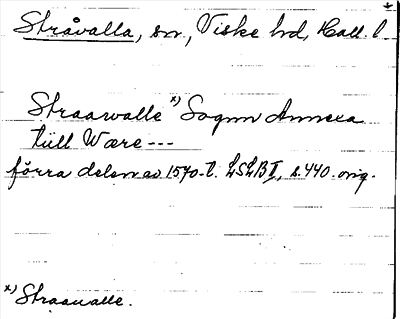 Stråvalla, sn, Viske hd, Hall. l.
Straawalle x) Sognn Annexa
tiill Wære ---
förra delen av 1570-t. LSLB II, s. 440. orig.
x) Straaualle.